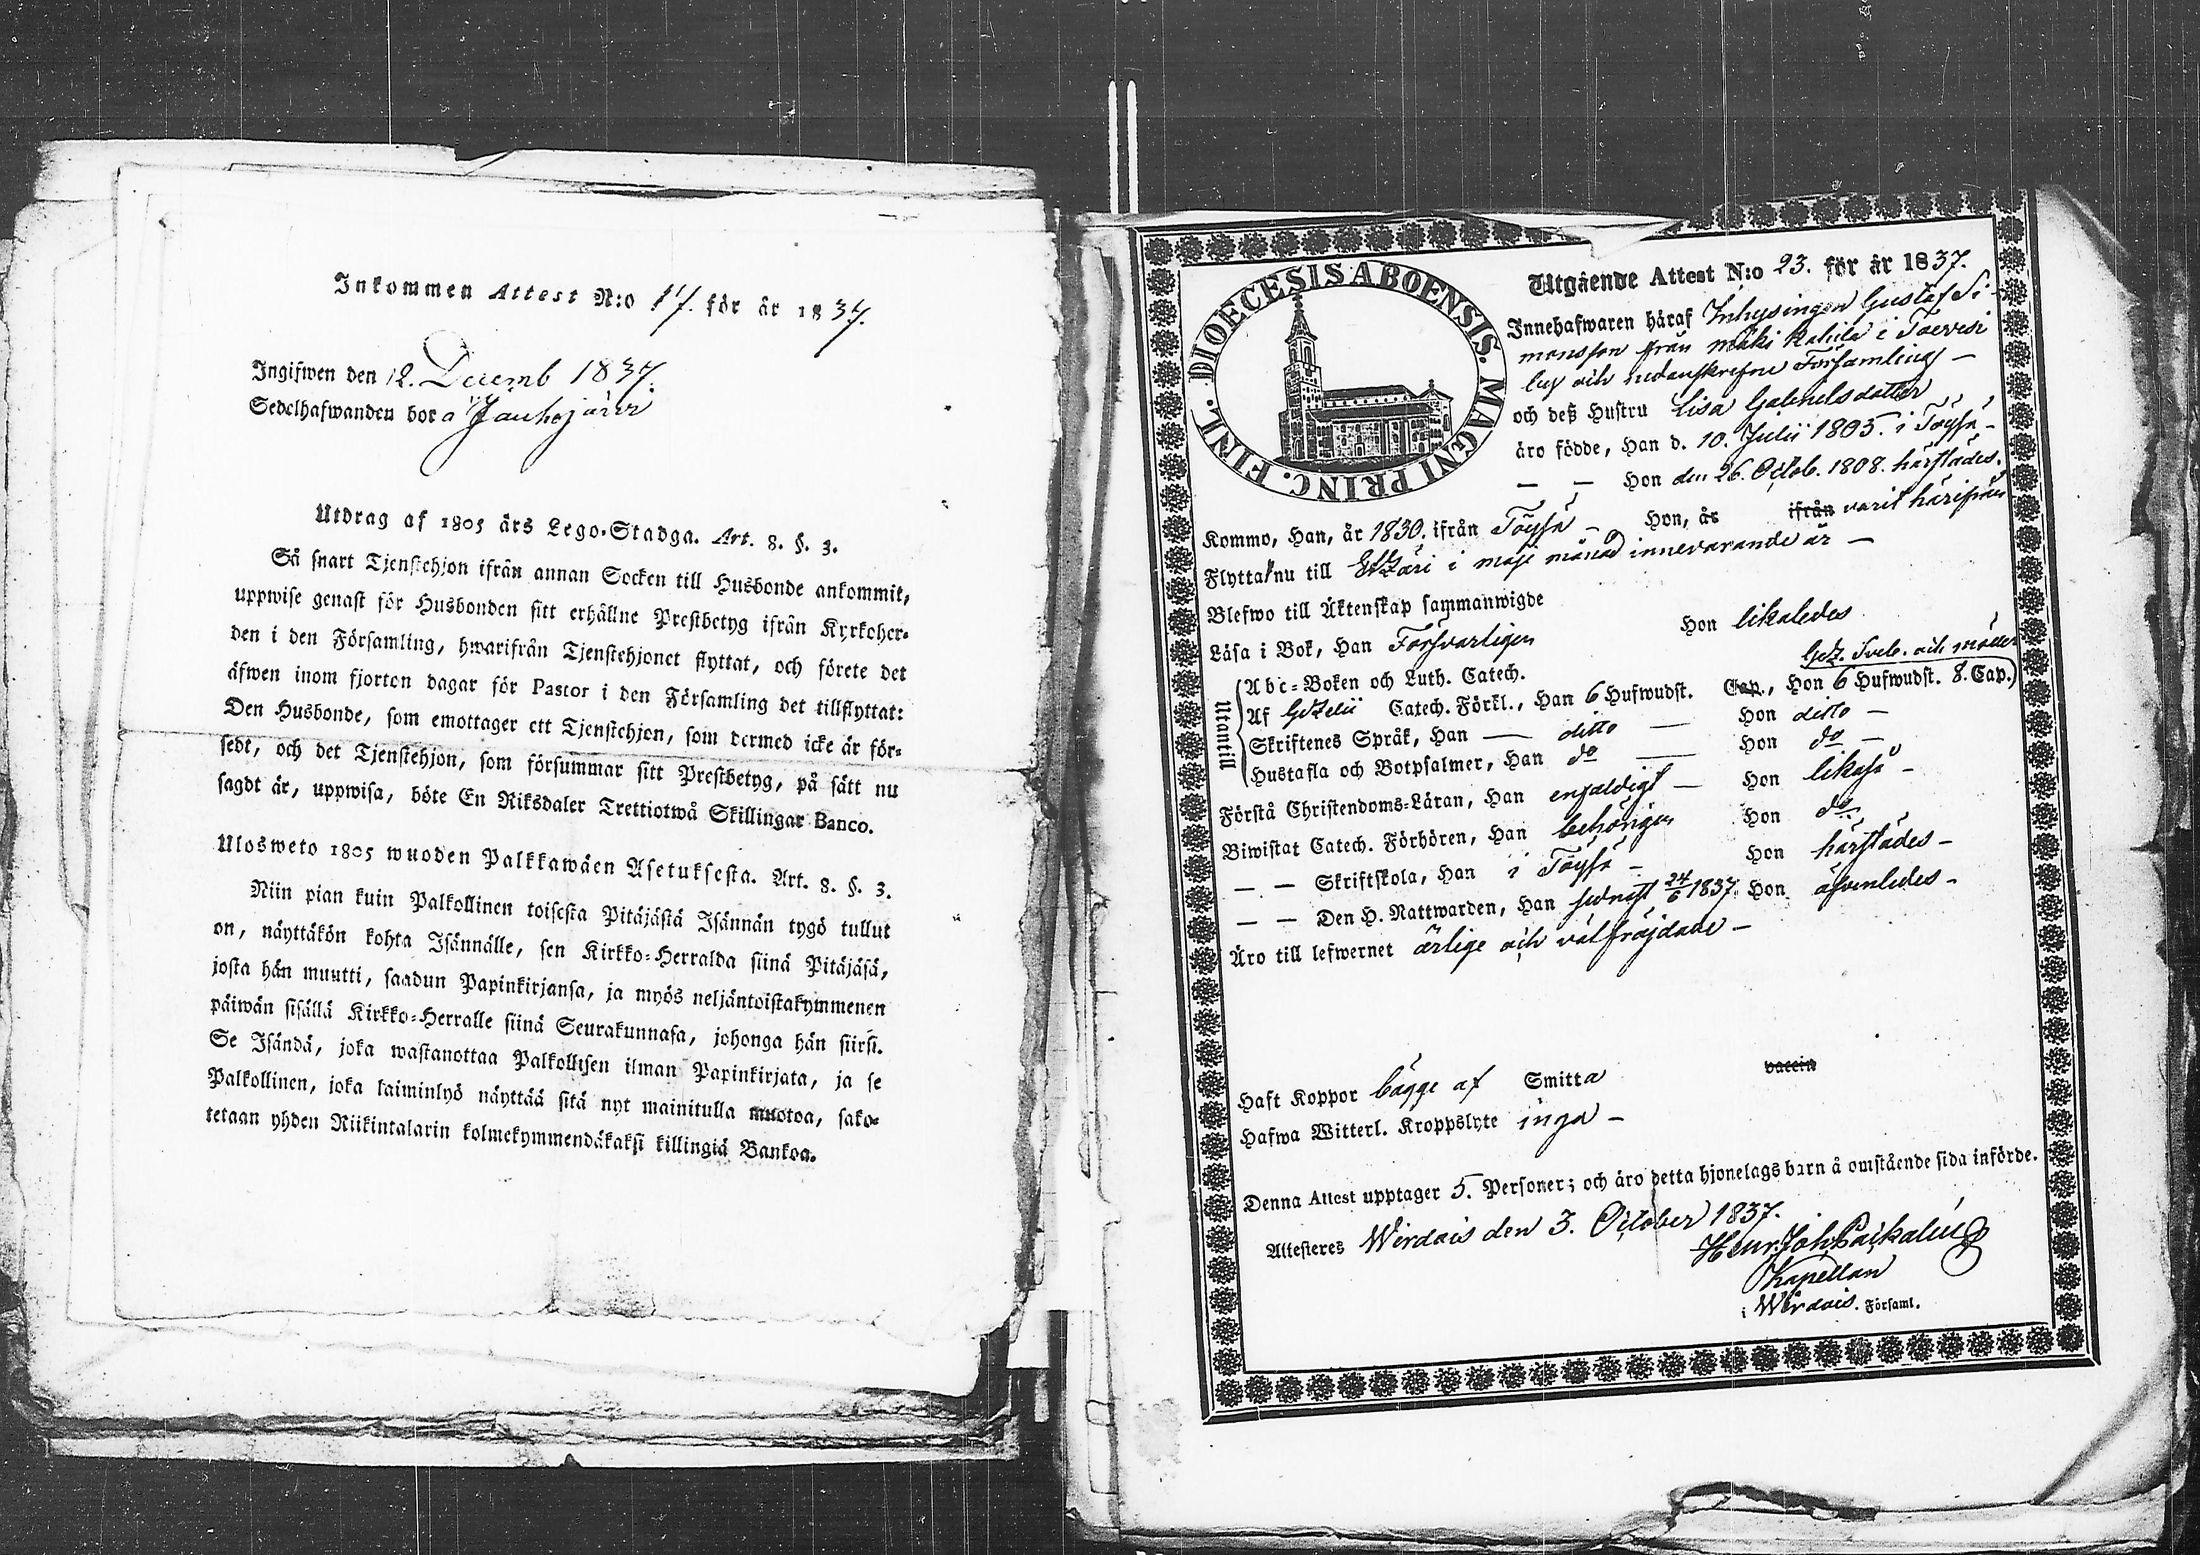 Inkommen Attest N:o 17. för år 1837.
Ingifwen den 12. Decemb 1837.
Sedelhafwanden bor å Jauhojärvi
Utdrag af 1805 års Lego-Stadga. Art. 8. §. 3.
Så snart Tjenstehjon ifrån annan Socken till Husbonde ankommit,
uppwise genast för Husbonden sitt erhållne Prestbetyg ifrån Kyrkoher-
den i den Församling, hwarifrån Tjenstehjonet flyttat, och förete det
äfwen inom fjorton dagar för Pastor i den Församling det tillflyttat:
Den Husbonde, som emottager ett Tjenstehjon, som dermed icke är för-
sedt, och det Tjenstehjon, som försummar sitt Prestbetyg, på sätt nu
sagdt är, uppwisa, böte En Riksdaler Trettiotwå Skillingar Banco.
Ulosweto 1805 wuoden Palkkawäen Asetuksesta. Art. 8. §. 3.
Niin pian kuin Palkollinen toisesta Pitäjästä Isännän tygö tullut
on, näyttäkön kohta Isännälle, sen Kirkko-Herralda siinä Pitäjäsä,
josta hän muutti, saadun Papinkirjansa, ja myös neljäntoistakymmenen
päiwän sisällä Kirkko-Herralle siinä Seurakunnasa, johonga hän siirsi.
Se Isändä, joka wastanottaa Palkollisen ilman Papinkirjata, ja se
Palkollinen, joka laiminlyö näyttää sitä nyt mainitulla muotoa, sako-
tetaan yhden Riikintalarin kolmekymmendäkaksi killingiä Bankoa.
DIOECESIS ABOENSIS. MAGNI PRINC. FINL.
Utgående Attest N:o 23. för år 1837.
Innehafwaren häraf Inhysingen Gustaf Si-
monsson från mäki Kaliila i Toevesi
by och nedanskrefne Församling —
och deß Hustru Lisa Gabrielsdotter
äro födde, Han d. 10. Julii 1803. i Töysä —
— — Hon den 26. Octob. 1808. härstädes.
Kommo, Han, år 1830. ifrån Töysä — Hon, år ifrån varit härifrån
Flytta nu till Etzäri i maji månad innevarande år —
Blefwo till Äktenskap sammanwigde
Läsa i Bok, Han Försvarligen Hon likaledes
Getz. Sveb. och möller
Utantill
Abc-Boken och Luth. Catech.
Af Getzelii Catech. Förkl., Han 6 Hufwudst. Cap., Hon 6 Hufwudst. 8. Cap.
Skriftenes Språk, Han — ditto — Hon ditto —
Hustafla och Botpsalmer, Han do — Hon do —
Förstå Christendoms-Läran, Han enfaldigt — Hon likaså —
Biwistat Catech. Förhören, Han behörigen Hon do
— — Skriftskola, Han i Töysä — Hon härstädes —
— — Den H. Nattwarden, Han sednast 24/6 1837. Hon äfvenledes —
Äro till lefwernet ärlige och välfräjdade —
Haft Koppor bägge af Smitta vaccin
Hafwa Witterl. Kroppslyte inga —
Denna Attest upptager 5. Personer; och äro detta hjonelags barn å omstående sida införde.
Attesteres Wirdois den 3. October 1837.
Henr. Joh.
Kapellan
i Wirdois. Församl.